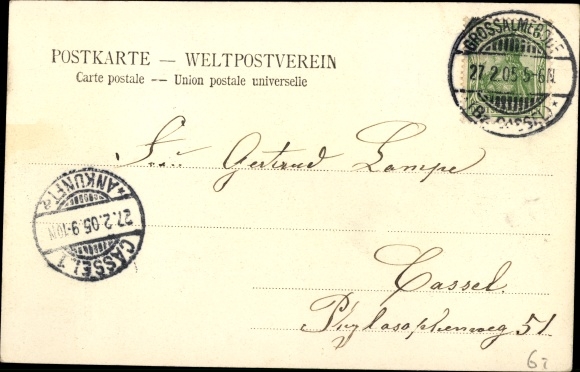 POSTKARTE — WELTPOSTVEREIN
Carte postale -- Union postale universelle
GROSSALMERODE
27.2.05.5-6N.
(Bz. CASSEL)
Frl. Gertrud Lampe
*ANKUNFT*
27.2.05.9-10N
CASSEL.1
Cassel.
Phylosophenweg 51
62